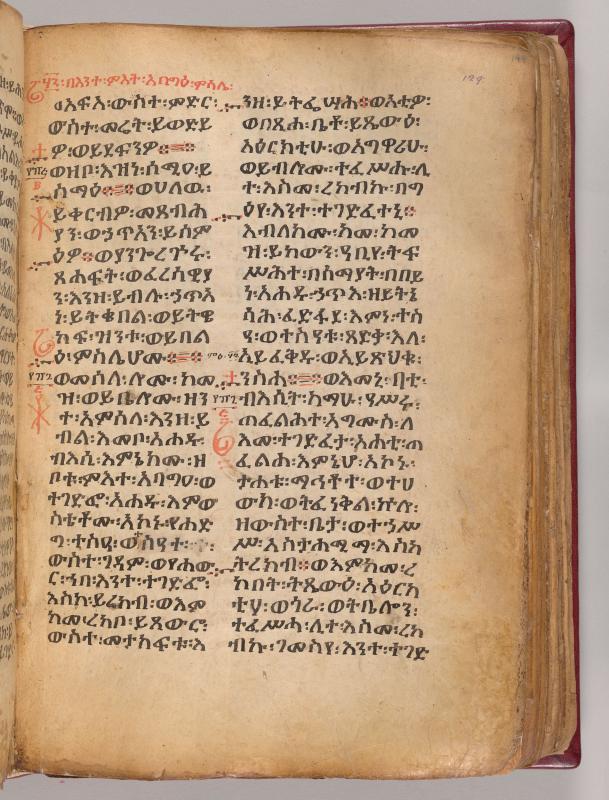 በእንተ፡ ምእት፡ አባግዕ፡ ምሳሌ፡
129
ወኢ፡ውስተ፡ምድር፡
ውስተ፡መሬት፡ይወድይ
ዎ፡ወይገድፍዎ፡፡
ወዘቦ፡እዝነ፡ሰሚዐ፡ይ
ስማዕ፡፡ወሀለዉ፡
ይቀርብዎ፡መጸብሐ
ያን፡ወኃጥአን፡ይሰም
ዕዎ፡፡ወያንጐረጕሩ፡
ጸሐፍት፡ወፈሪሳዊያ
ን፡እንዘ፡ይብሉ፡ኃጥአ
ነ፡ይትቄበል፡ወይትዌ
ከፍ፡ዝንቱ፡ወይበል
ዕ፡ምስሌሆሙ፡፡
ወመሰለ፡ሎሙ፡ከመ
ዝ፡ወይቤሎሙ፡ዘን
ተ፡አምሳለ፡እንዘ፡ይ
ብል፡እመቦ፡አሐዱ፡
ብእሲ፡እምኔክሙ፡ዘ
ቦቱ፡ምእት፡አባግዐ፡ወ
ተገድፎ፡አሐዱ፡እምው
ስቴቶሙ፡አኮኑ፡የሐድ
ግ፡ተስዓ፡ወተስዓተ፡
ውስተ፡ገዳም፡ወየሐው
ር፡ኀበ፡እንተ፡ተገድፎ፡
እስከ፡ይረክብ፡ወእም
ከመ፡ረከቦ፡ይጸውሮ፡
ውስተ፡መታክፍቱ፡እ
ንዘ፡ይትፌሣሕ፡፡ወአቲዎ፡
ወበጺሖ፡ቤቶ፡ይጼውዕ፡
አዕርክቲሁ፡ወአግዋሪሁ፡
ወይብሎሙ፡ተፈሥሑ፡ሊ
ተ፡እስመ፡ረከብኩ፡በግ
ዕየ፡እንተ፡ተገድፈተኒ፡፡
እብለክሙ፡ከመ፡ከመ
ዝ፡ይከውን፡ዓቢየ፡ትፍ
ሥሕተ፡በሰማያት፡በበይ
ነ፡አሐዱ፡ኃጥእ፡ዘይትኔ
ሳሕ፡ፈድፋደ፡እምነ፡ተስ
ዓ፡ወተስዓቱ፡ጻድቃ፡እለ፡
ኢይፈቅዱ፡ወኢይጽህቁ፡
ንስሐ፡፡ወእመኒ፡ባቲ፡
ብእሲት፡ከማሁ፡ዓሥሩ፡
ጠፈልሐተ፡እግሙስ፡ለ
እመ፡ተገድፈታ፡አሐቲ፡ጠ
ፈልሐ፡እምኔሆ፡አኮኑ፡
ታሐቱ፡ማኅቶተ፡ወተሀ
ውክ፡ወትፈነቅል፡ኵሎ፡
ዘውስተ፡ቤታ፡ወተኃሥ
ሥ፡አስታሐሚማ፡እስከ
ትረክብ፡፡ወእምከመ፡ረ
ከበት፡ትጼውዕ፡አዕርክ
ቲሃ፡ወጎራ፡ወትቤሎን፡
ተፈሥሓ፡ሊተ፡እስመ፡ረከ
ብኩ፡ገመስየ፡እንተ፡ተገድ